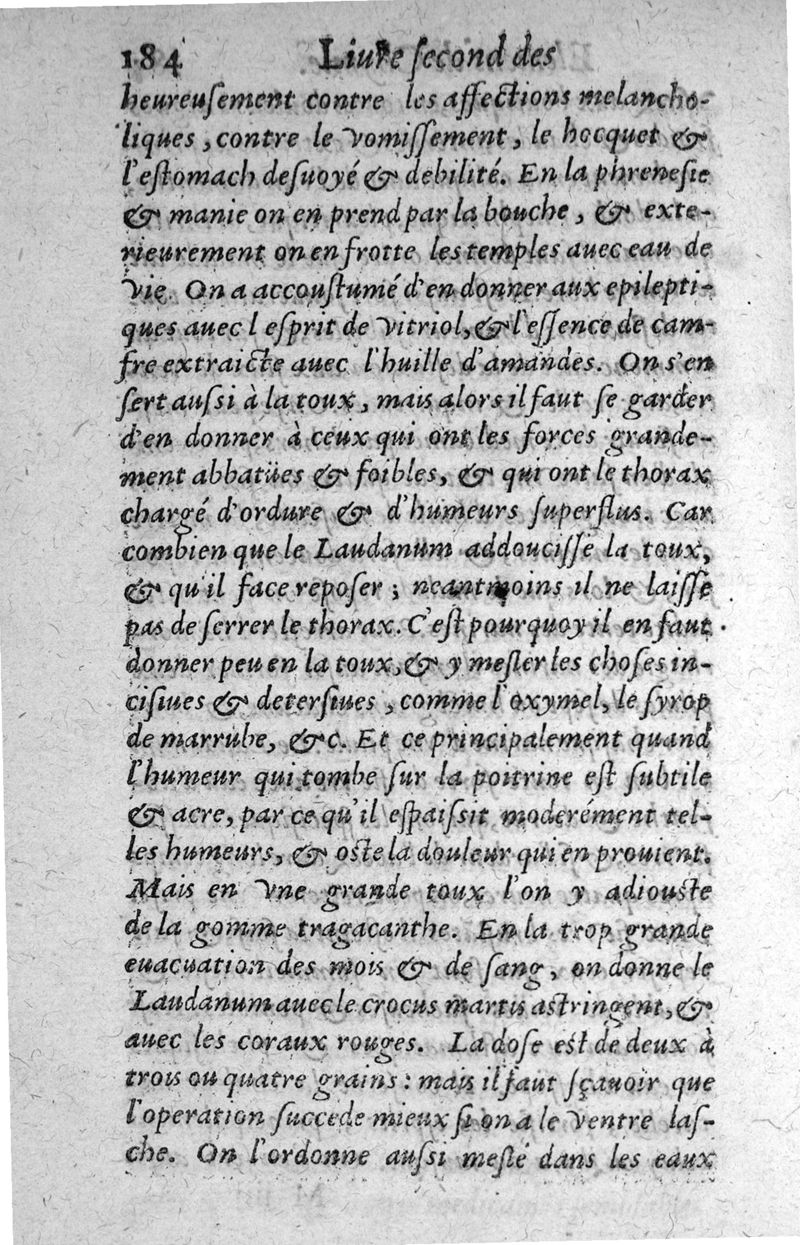 184 Liure ſecond des
heureuſement contre les affections melancho-
liques, contre le vomiſſement, le hocquet &
l'eſtomach deſuoyé & debilité. En la phreneſie
& manie on en prend par la bouche, & exte-
rieurement on en frotte les temples auec eau de
vie. On a accouſtumé d'en donner aux epilepti-
ques auec l eſprit de vitriol, & l'eſſence de cam-
fre extraicte auec l'huille d'amandes. On s'en
ſert auſsi à la toux, mais alors il faut ſe garder
d'en donner à ceux qui ont les forces grande-
ment abbatües & foibles, & qui ont le thorax
chargé d'ordure & d'humeurs ſuperflus. Car
combien que le Laudanum addouciſſe la toux,
& qu'il face repoſer ; neantmoins il ne laiſſe
pas de ſerrer le thorax. C'eſt pourquoy il en faut
donner peu en la toux, & y meſler les choſes in-
ciſiues & deterſiues, comme l'oxymel, le ſyrop
de marrube, &c. Et ce principalement quand
l'humeur qui tombe ſur la poitrine eſt ſubtile
& acre, par ce qu'il eſpaiſsit moderément tel-
les humeurs, & oſte la douleur qui en prouient.
Mais en vne grande toux l'on y adiouſte
de la gomme tragacanthe. En la trop grande
euacuation des mois & de ſang, on donne le
Laudanum auec le crocus martis astringent, &
auec les coraux rouges. La doſe eſt de deux à
trois ou quatre grains : mais il faut ſçauoir que
l'operation ſuccede mieux ſi on a le ventre laſ-
che. On l'ordonne auſsi meſlé dans les eaux